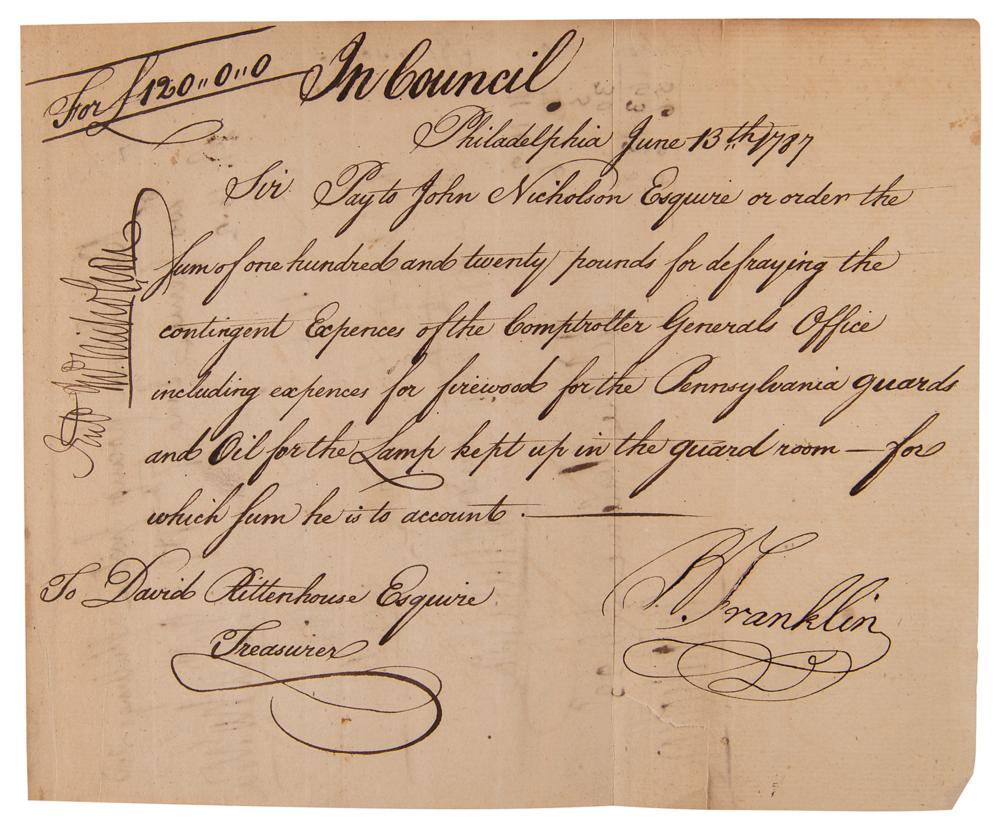 For £120,,0,,0
In Council
Philadelphia June 13th. 1787
Sir Pay to John Nicholson Esquire or order the
sum of one hundred and twenty pounds for defraying the
contingent Expences of the Comptroller Generals Office
including expences for firewood for the Pennsylvania guards
and Oil for the Lamp kept up in the guard room — for
which sum he is to account.
To David Rittenhouse Esquire
Treasurer
B. Franklin
Jno Nicholson